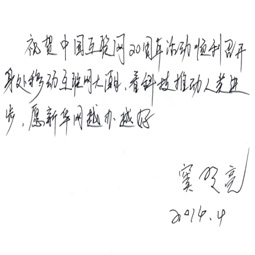 祝贺中国互联网20周年活动顺利召开
身处移动互联网大潮，看科技推动人类进
步，愿新华网越办越好
2014.4